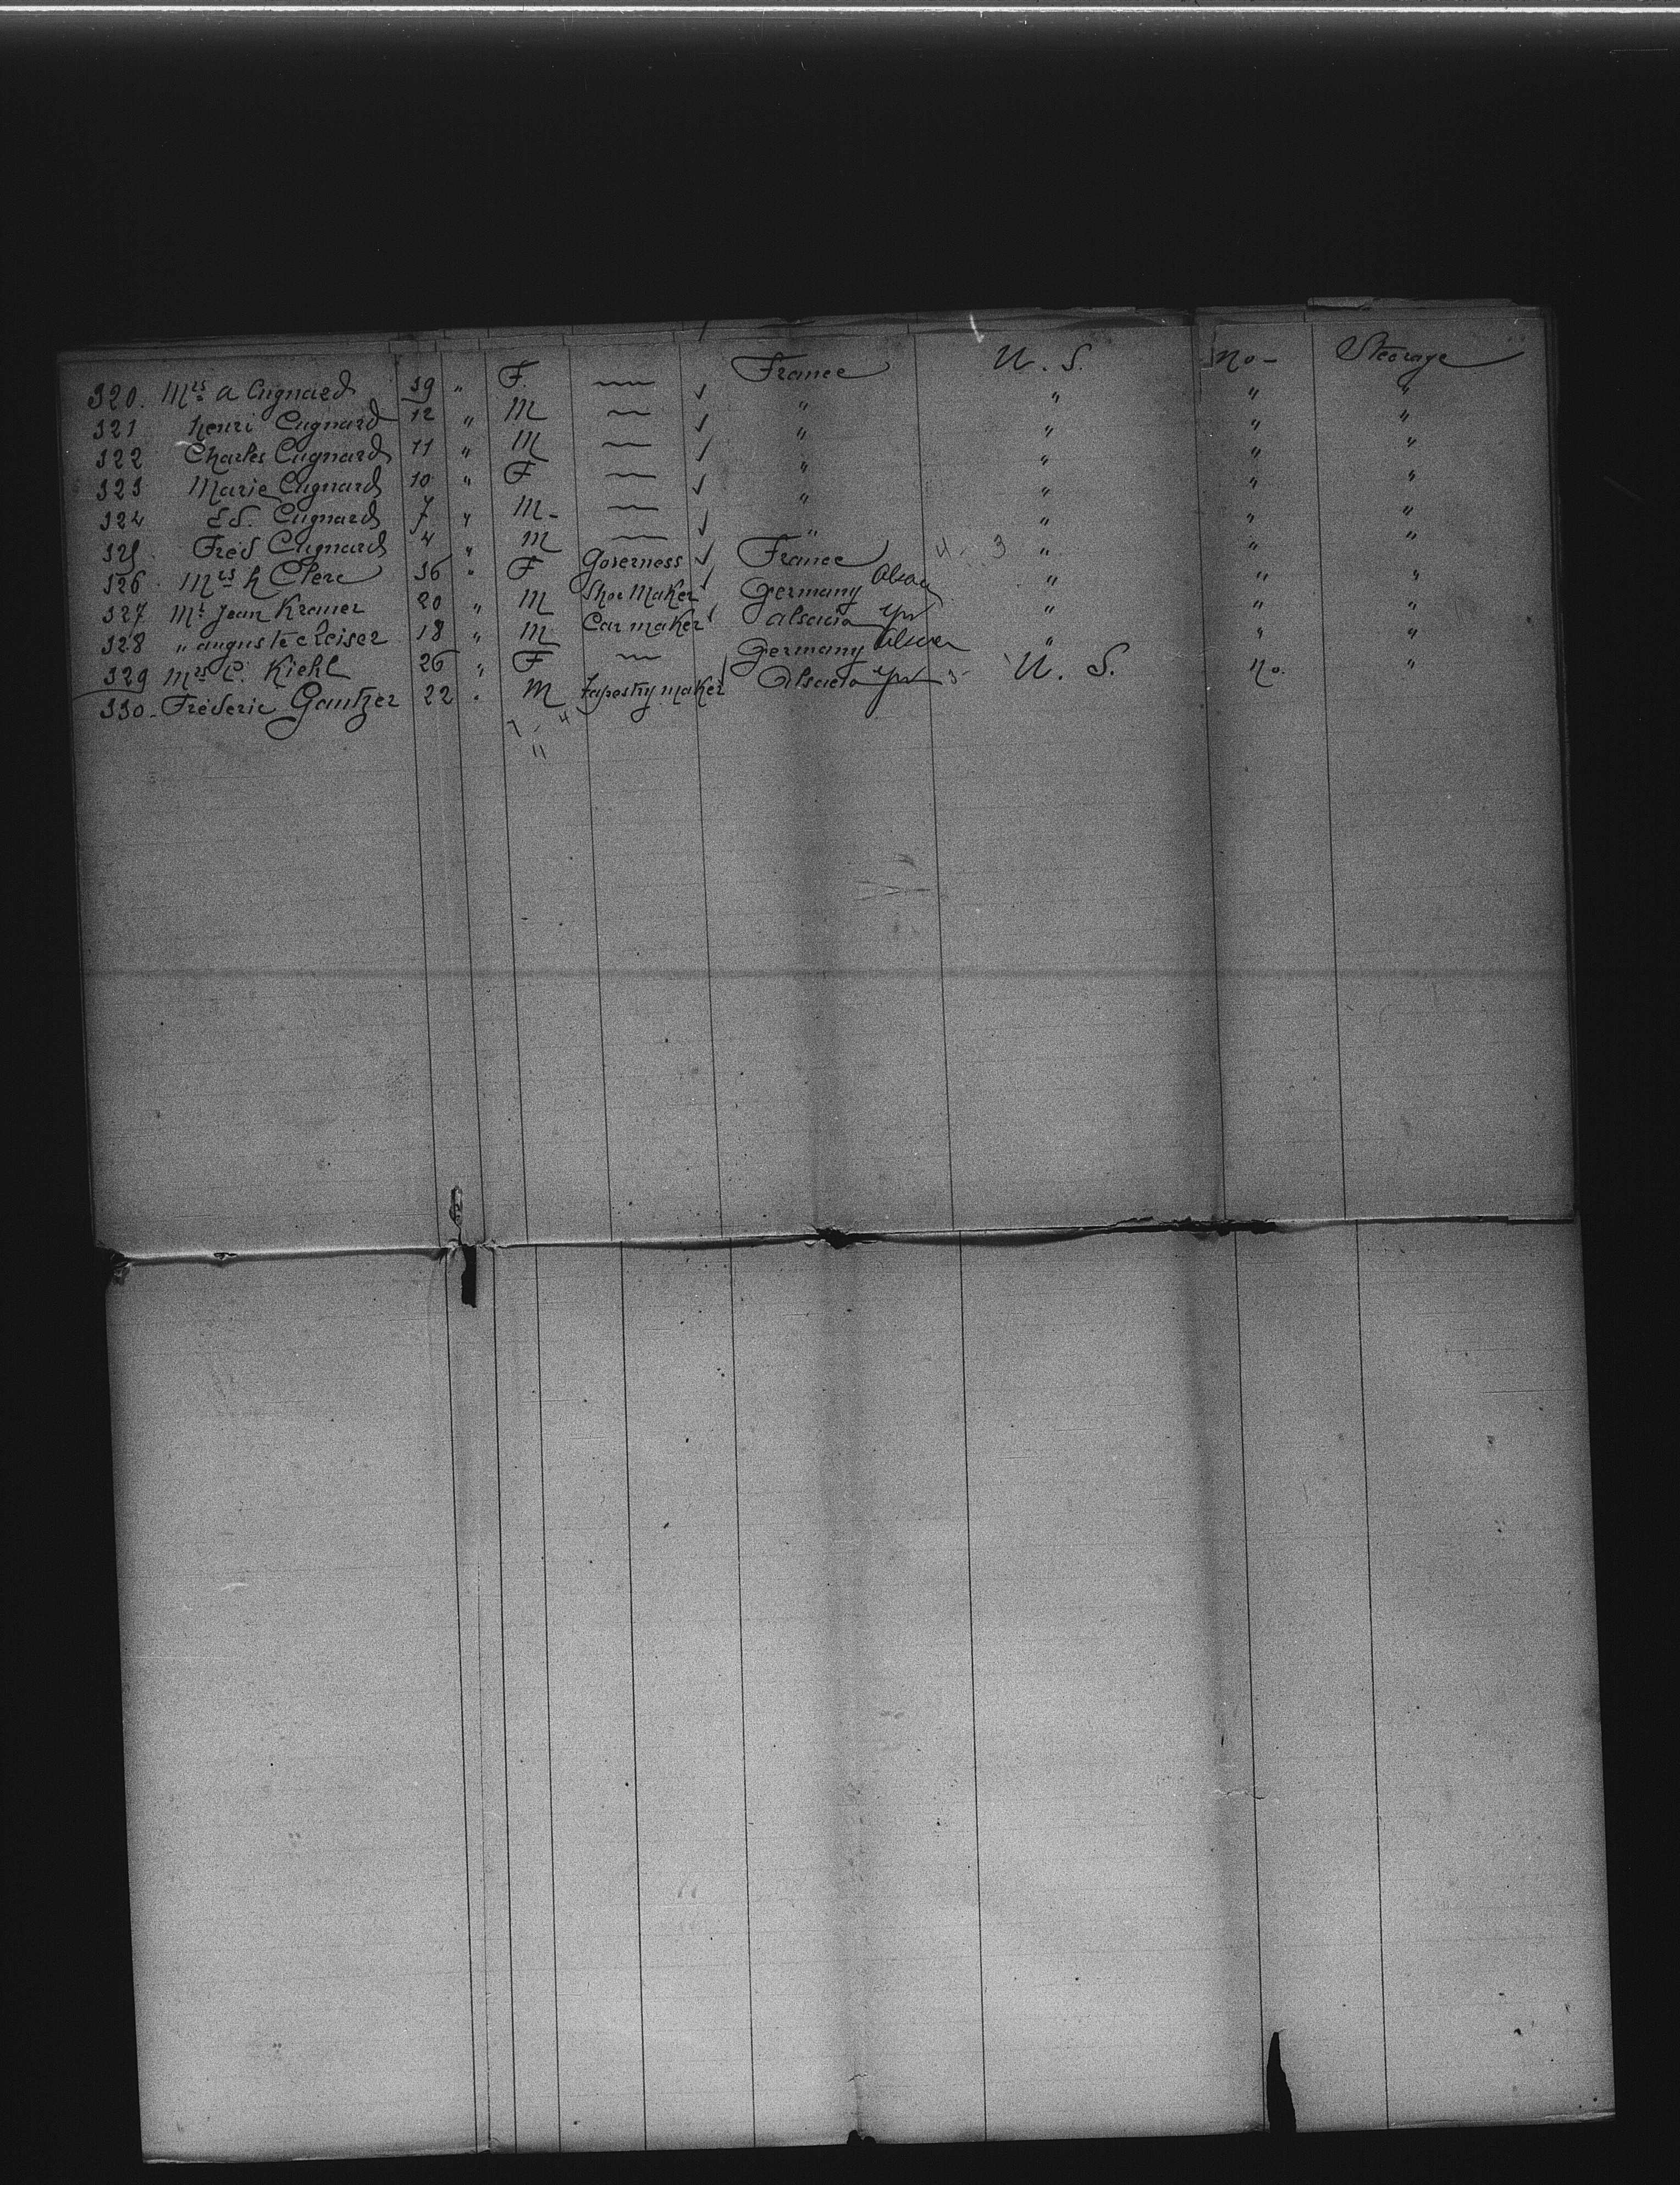 320. Mrs A Cugnard 39 " F. ~ ✓ France U. S. No - Steerage
321 Henri Cugnard 12 " M ~ ✓ " " " "
322 Charles Cugnard 11 " M ~ ✓ " " " "
323 Marie Cugnard 10 " F ~ ✓ " " " "
324 Ed. Cugnard 7 " M - ~ ✓ " " " "
325. Fred Cugnard 4 " M ~ ✓ " " " "
326. Mrs h Clerc 36 " F Governess ✓ France 4 - 3 " " "
327 Mr Jean Kramer 20 " M Shoe Maker ✓ Germany " " "
328 " auguste 18 " M Car maker ✓ alsacia " " "
329 Mrs C. Kiehl 26 " F ~ Germany " " "
330 - Fréderic Gantzer 22 " M tapestry maker / Alsacia U. S. No. "
7 - 4
11